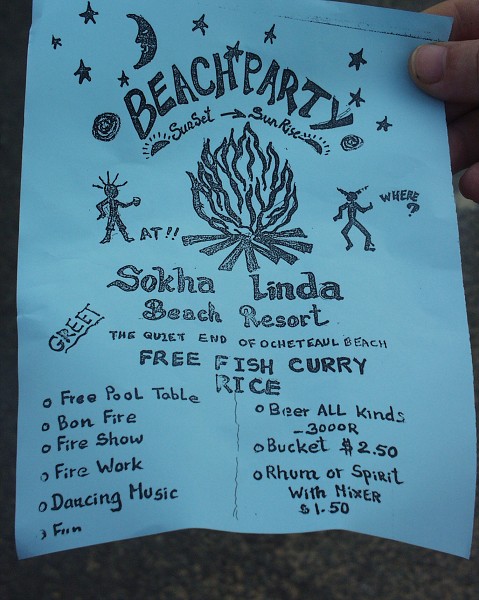 BEACH PARTY
SunSet → SunRise
WHERE?
AT!!
Sokha Linda
Beach Resort
GREET
THE QUIET END OF OCHETEAUL BEACH
FREE FISH CURRY
RICE
o Free Pool Table
o Bon Fire
o Fire Show
o Fire Work
o Dancing Music
o Fun
o Beer ALL Kinds
-3000R
o Bucket $2.50
o Rhum or Spirit
With MixER
$1.50